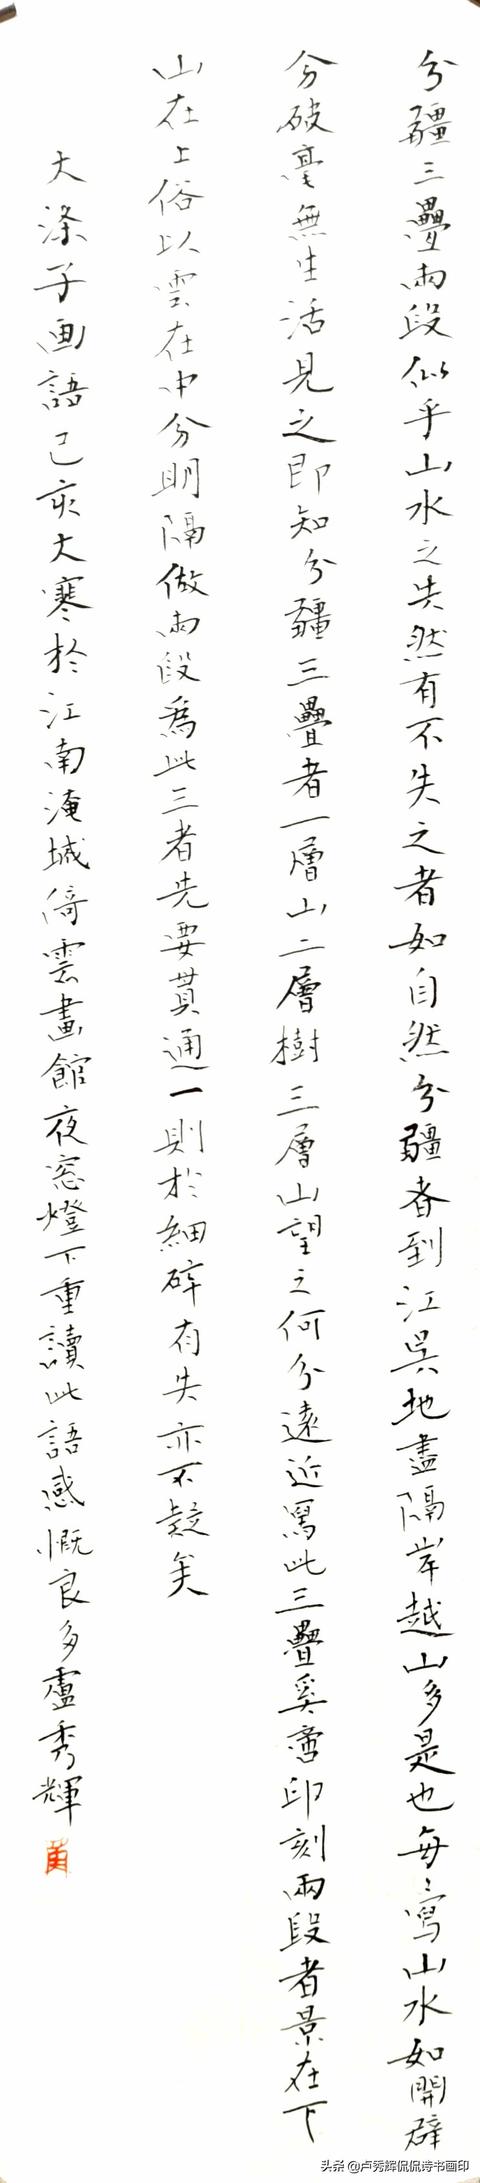 分疆三疊兩段似乎山水之失然有不失之者如自然分疆者到江吳地盡隔岸越山多是也每〻寫山水如開闢
分破毫無生活見之即知分疆三疊者一層山二層樹三層山望之何分遠近寫此三疊奚啻印刻兩段者景在下
山在上俗以雲在中分明隔做兩段為此三者先要貫通一則於細碎有失亦不疑矣
大滌子画語己亥大寒於江南淹城倚雲畫館夜窓燈下重讀此語感慨良多盧秀輝
头条 @卢秀辉侃侃诗书画印